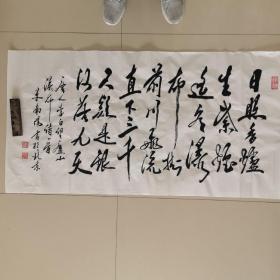 日照香炉
生紫烟
遥看瀑
布挂
前川飞流
直下三千
尺疑是银
河落九天
唐人李白望庐山
瀑布诗一首
书于北京